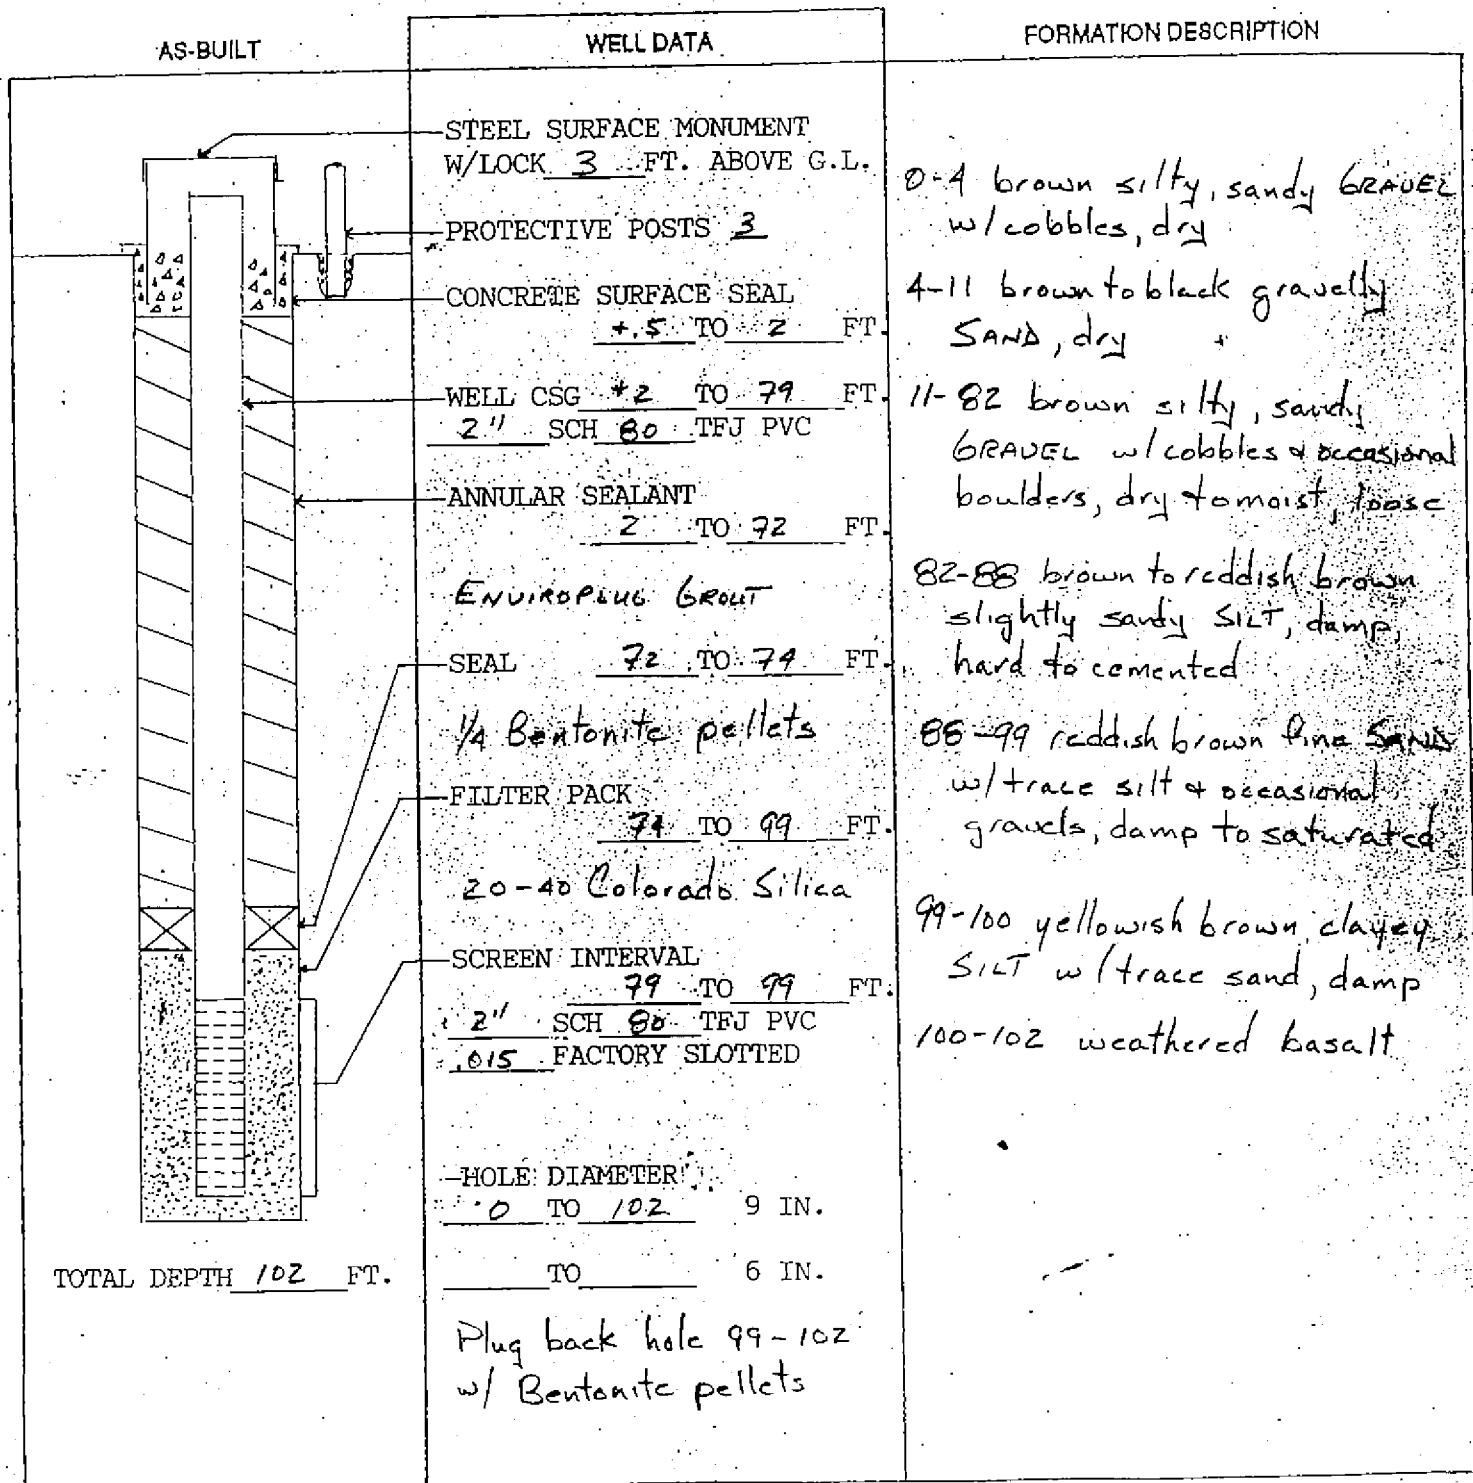 AS-BUILT
WELL DATA
FORMATION DESCRIPTION
STEEL SURFACE MONUMENT
W/LOCK 3 FT. ABOVE G.L.
PROTECTIVE POSTS 3
CONCRETE SURFACE SEAL
+.5 TO 2 FT.
WELL CSG +2 TO 79 FT.
2" SCH 80 TFJ PVC
ANNULAR SEALANT
2 TO 72 FT.
ENVIROPLUG GROUT
SEAL 72 TO 74 FT.
1/4 Bentonite pellets
FILTER PACK
74 TO 99 FT.
20-40 Colorado Silica
SCREEN INTERVAL
79 TO 99 FT.
2" SCH 80 TFJ PVC
.015 FACTORY SLOTTED
HOLE DIAMETER
0 TO 102 9 IN.
TO 6 IN.
Plug back hole 99-102
w/ Bentonite pellets
0-4 brown silty, sandy GRAVEL
w/cobbles, dry
4-11 brown to black gravelly
SAND, dry
11-82 brown silty, sandy
GRAVEL w/cobbles & occasional
boulders, dry to moist, loose
82-88 brown to reddish brown
slightly sandy SILT, damp,
hard to cemented
88-99 reddish brown fine SAND
w/trace silt & occasional
gravels, damp to saturated
99-100 yellowish brown clayey
SILT w/trace sand, damp
100-102 weathered basalt
TOTAL DEPTH 102 FT.